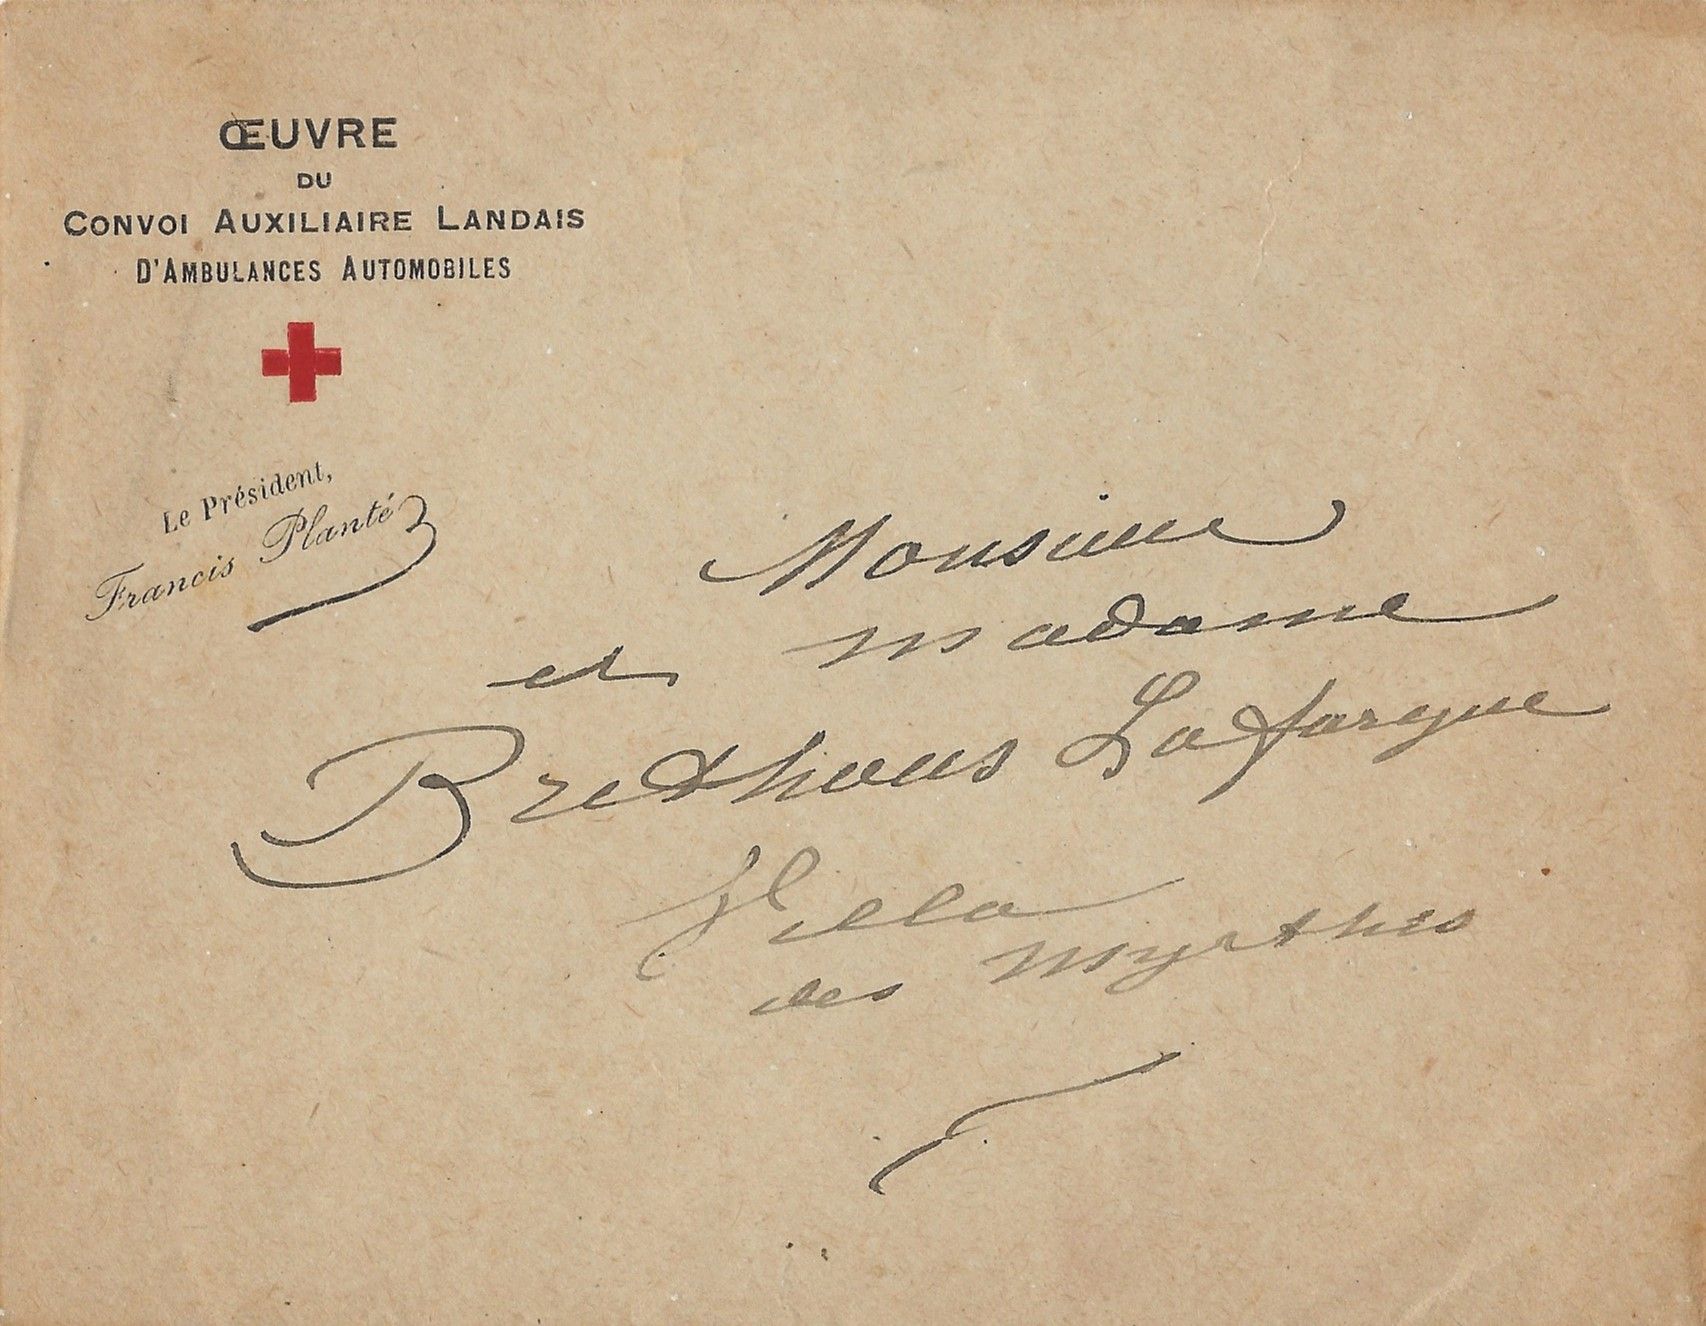 ŒUVRE
DU
CONVOI AUXILIAIRE LANDAIS
D'AMBULANCES AUTOMOBILES
Le Président,
Francis Planté
Monsieur
et madame
Brethous Lafargue
Villa
des myrthes